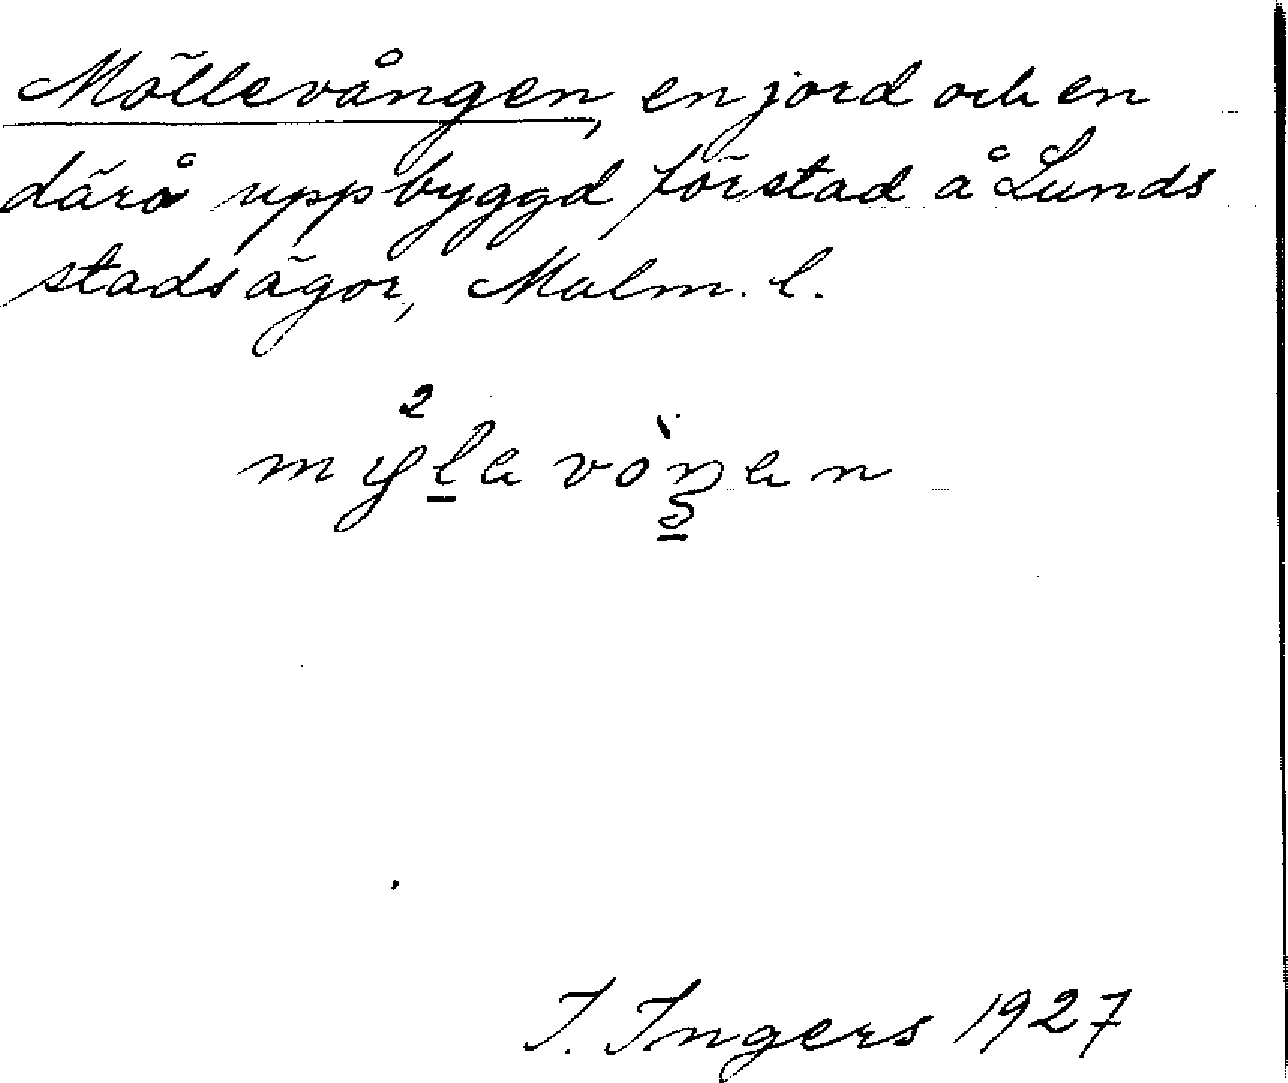 Möllevången, en jord och en
därå uppbyggd förstad å Lunds
stadsägor, Malm. l.
I. Ingers 1927